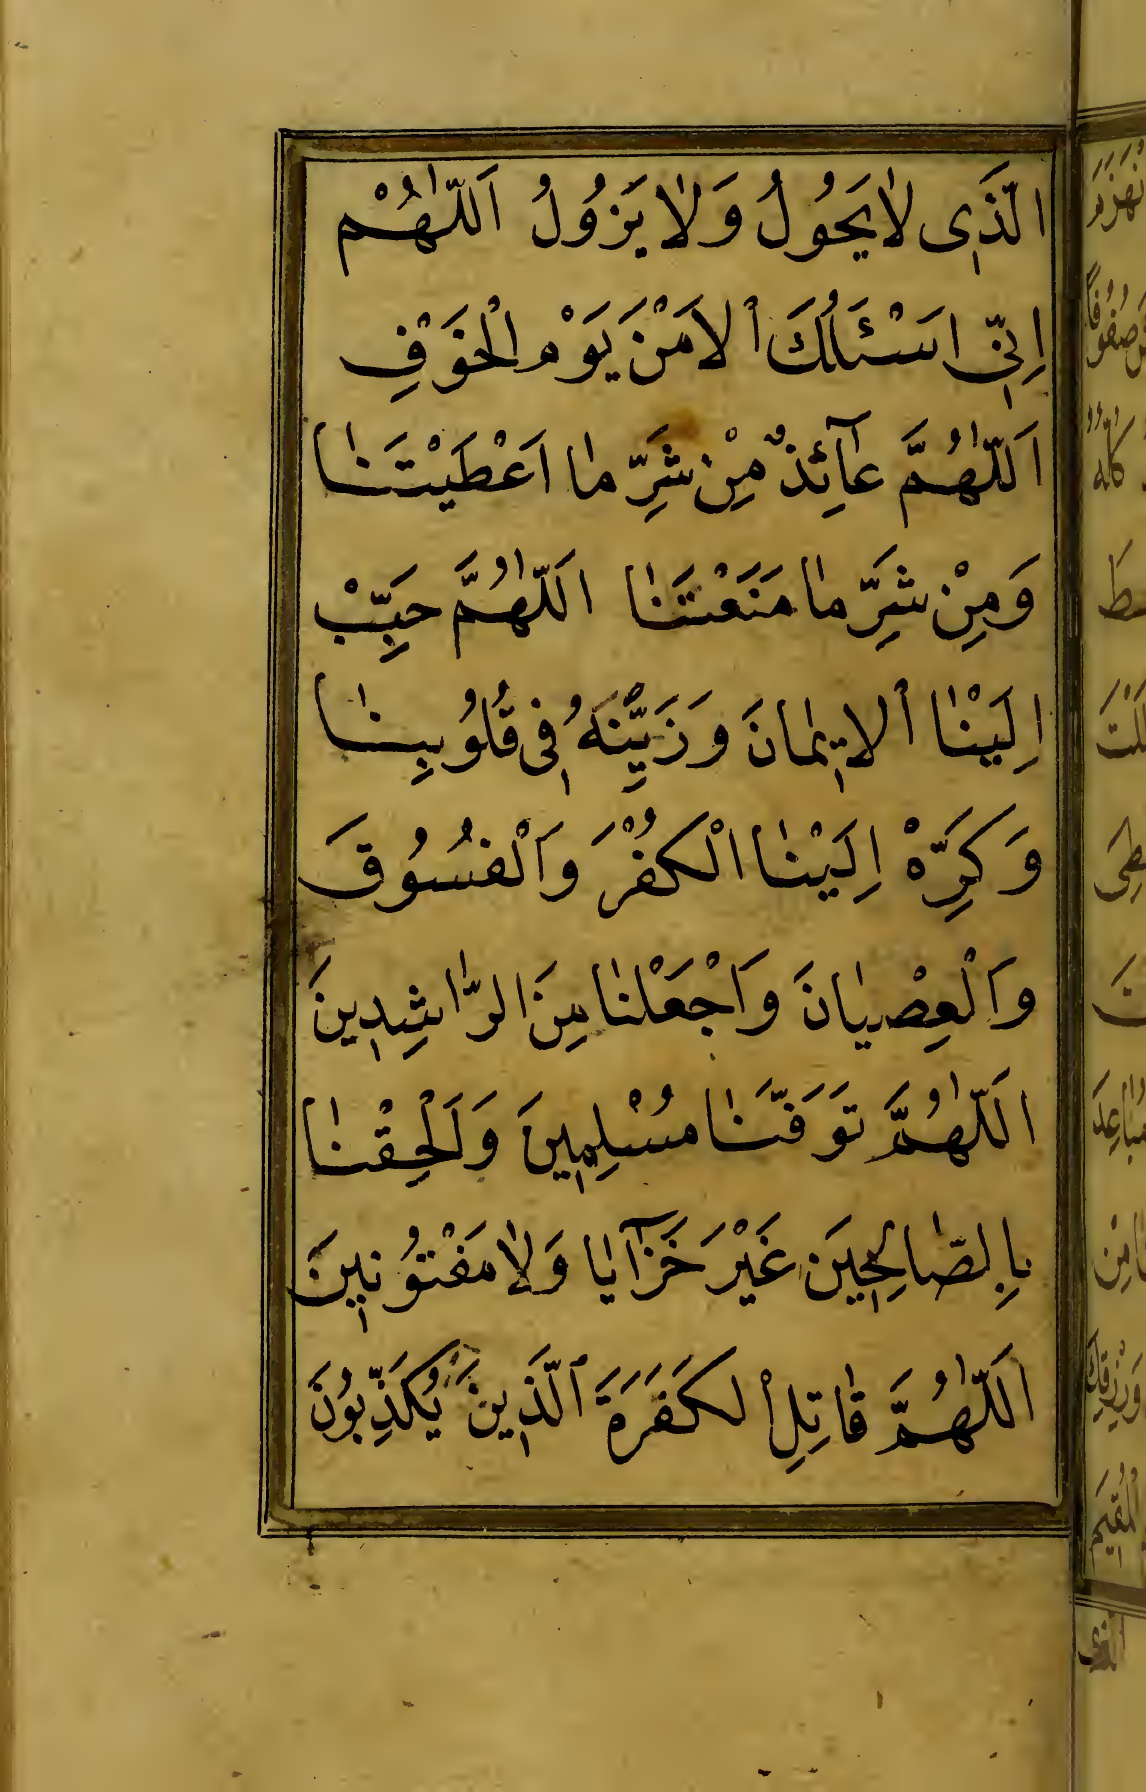 الَّذِى لَايَحُولُ وَلَا يَزُولُ اَللّٰهُمَّ
اِنِّى اَسْئَلُكَ الْاَمْنَ يَوْمَ الْخَوْفِ
اَللّٰهُمَّ عَآئِذٌ مِنْ شَرِّ مٰا اَعْطَيْتَنٰا
وَمِنْ شَرِّ مٰا مَنَعْتَنٰا اَللّٰهُمَّ حَبِّبْ
اِلَيْنٰا الْاِيمٰانَ وَزَيِّنْهُ فِى قُلُوبِنٰا
وَكَرِّهْ اِلَيْنٰا الْكُفْرَ وَالْفُسُوقَ
وَالْعِصْيٰانَ وَاجْعَلْنٰا مِنَ الرّٰاشِدِينَ
اَللّٰهُمَّ تَوَفَّنٰا مُسْلِمِينَ وَاَلْحِقْنٰا
بِالصّٰالِحِينَ غَيْرَ خَزٰآيٰا وَلٰا مَفْتُونِينَ
اَللّٰهُمَّ قٰاتِلِ الْكَفَرَةَ الَّذِينَ يُكَذِّبُونَ